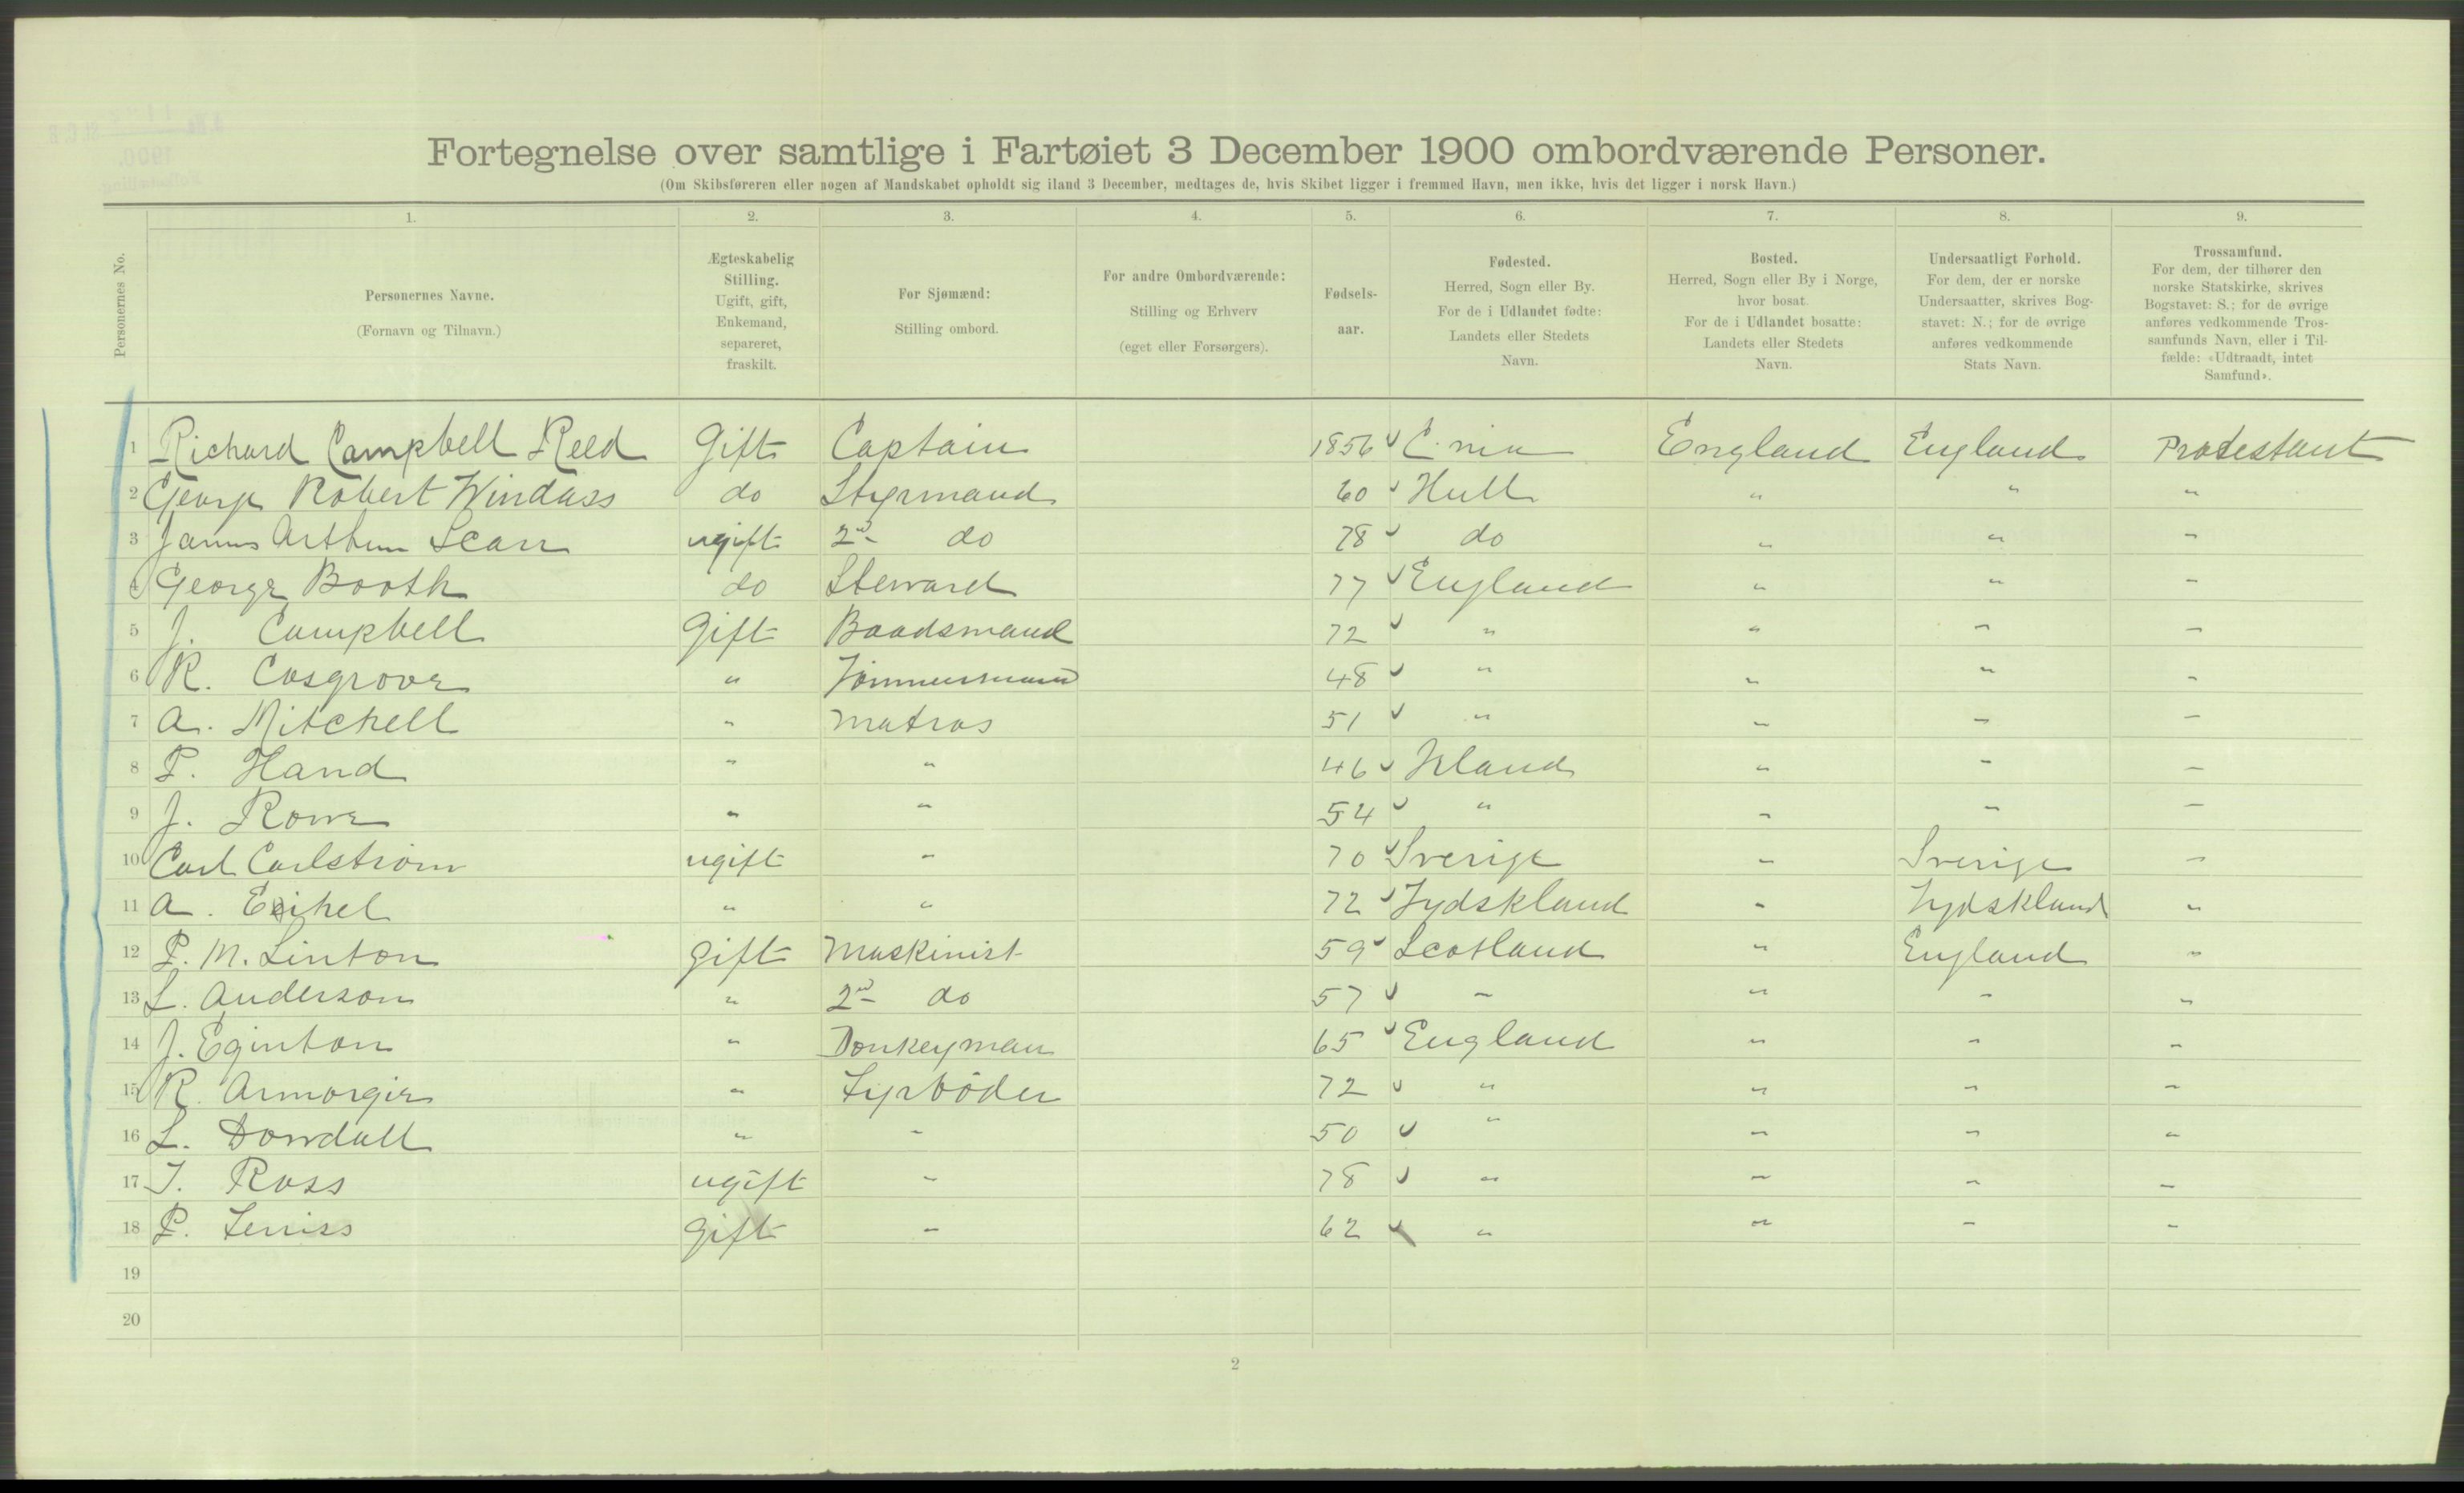 Fortegnelse over samtlige i Fartøiet 3 December 1900 ombordværende Personer.
(Om Skibsføreren eller nogen af Mandskabet opholdt sig iland 3 December, medtages de, hvis Skibet ligger i fremmed Havn, men ikke, hvis det ligger i norsk Havn.)
1. 2. 3. 4. 5. 6. 7. 8. 9.
Personernes No.
Personernes Navne.
(Fornavn og Tilnavn.)
Ægteskabelig
Stilling.
Ugift, gift,
Enkemand,
separeret,
fraskilt.
For Sjømænd:
Stilling ombord.
For andre Ombordværende:
Stilling og Erhverv
(eget eller Forsørgers).
Fødsels-
aar.
Fødested.
Herred, Sogn eller By.
For de i Udlandet fødte:
Landets eller Stedets
Navn.
Bosted.
Herred, Sogn eller By i Norge,
hvor bosat.
For de i Udlandet bosatte:
Landets eller Stedets
Navn.
Undersaatligt Forhold.
For dem, der er norske
Undersaatter, skrives Bog-
stavet: N.; for de øvrige
anføres vedkommende
Stats Navn.
Trossamfund.
For dem, der tilhører den
norske Statskirke, skrives
Bogstavet: S.; for de øvrige
anføres vedkommende Tros-
samfunds Navn, eller i Til-
fælde: «Udtraadt, intet
Samfund».
1 Richard Campbell Reed Gift Captain 1856 C.nia England England Protestant
2 George Robert Windass do Styrmand 60 Hull " " "
3 James Arthur Scarr ugift 2nd do 78 do " " "
4 George Booth do Steward 77 England " " "
5 J. Campbell Gift Baadsmand 72 " " " "
6 R. Cosgrove " Tömmermand 48 " " " "
7 A. Mitchell " Matros 51 " " " "
8 P. Hand " " 46 Irland " " "
9 J. Rowe " " 54 " " " "
10 Carl Carlström ugift " 70 Sverige " Sverige "
11 A. " " 72 Tydskland " Tydskland "
12 P. M. Linton gift Maskinist 59 Scotland " England "
13 L. Anderson " 2nd do 57 " " " "
14 J. Eginton " Donkeyman 65 England " " "
15 R. " Fyrböder 72 " " " "
16 L. Dowdall " " 50 " " " "
17 J. Ross ugift " 78 " " " "
18 P. gift " 62 " " " "
19
20
2